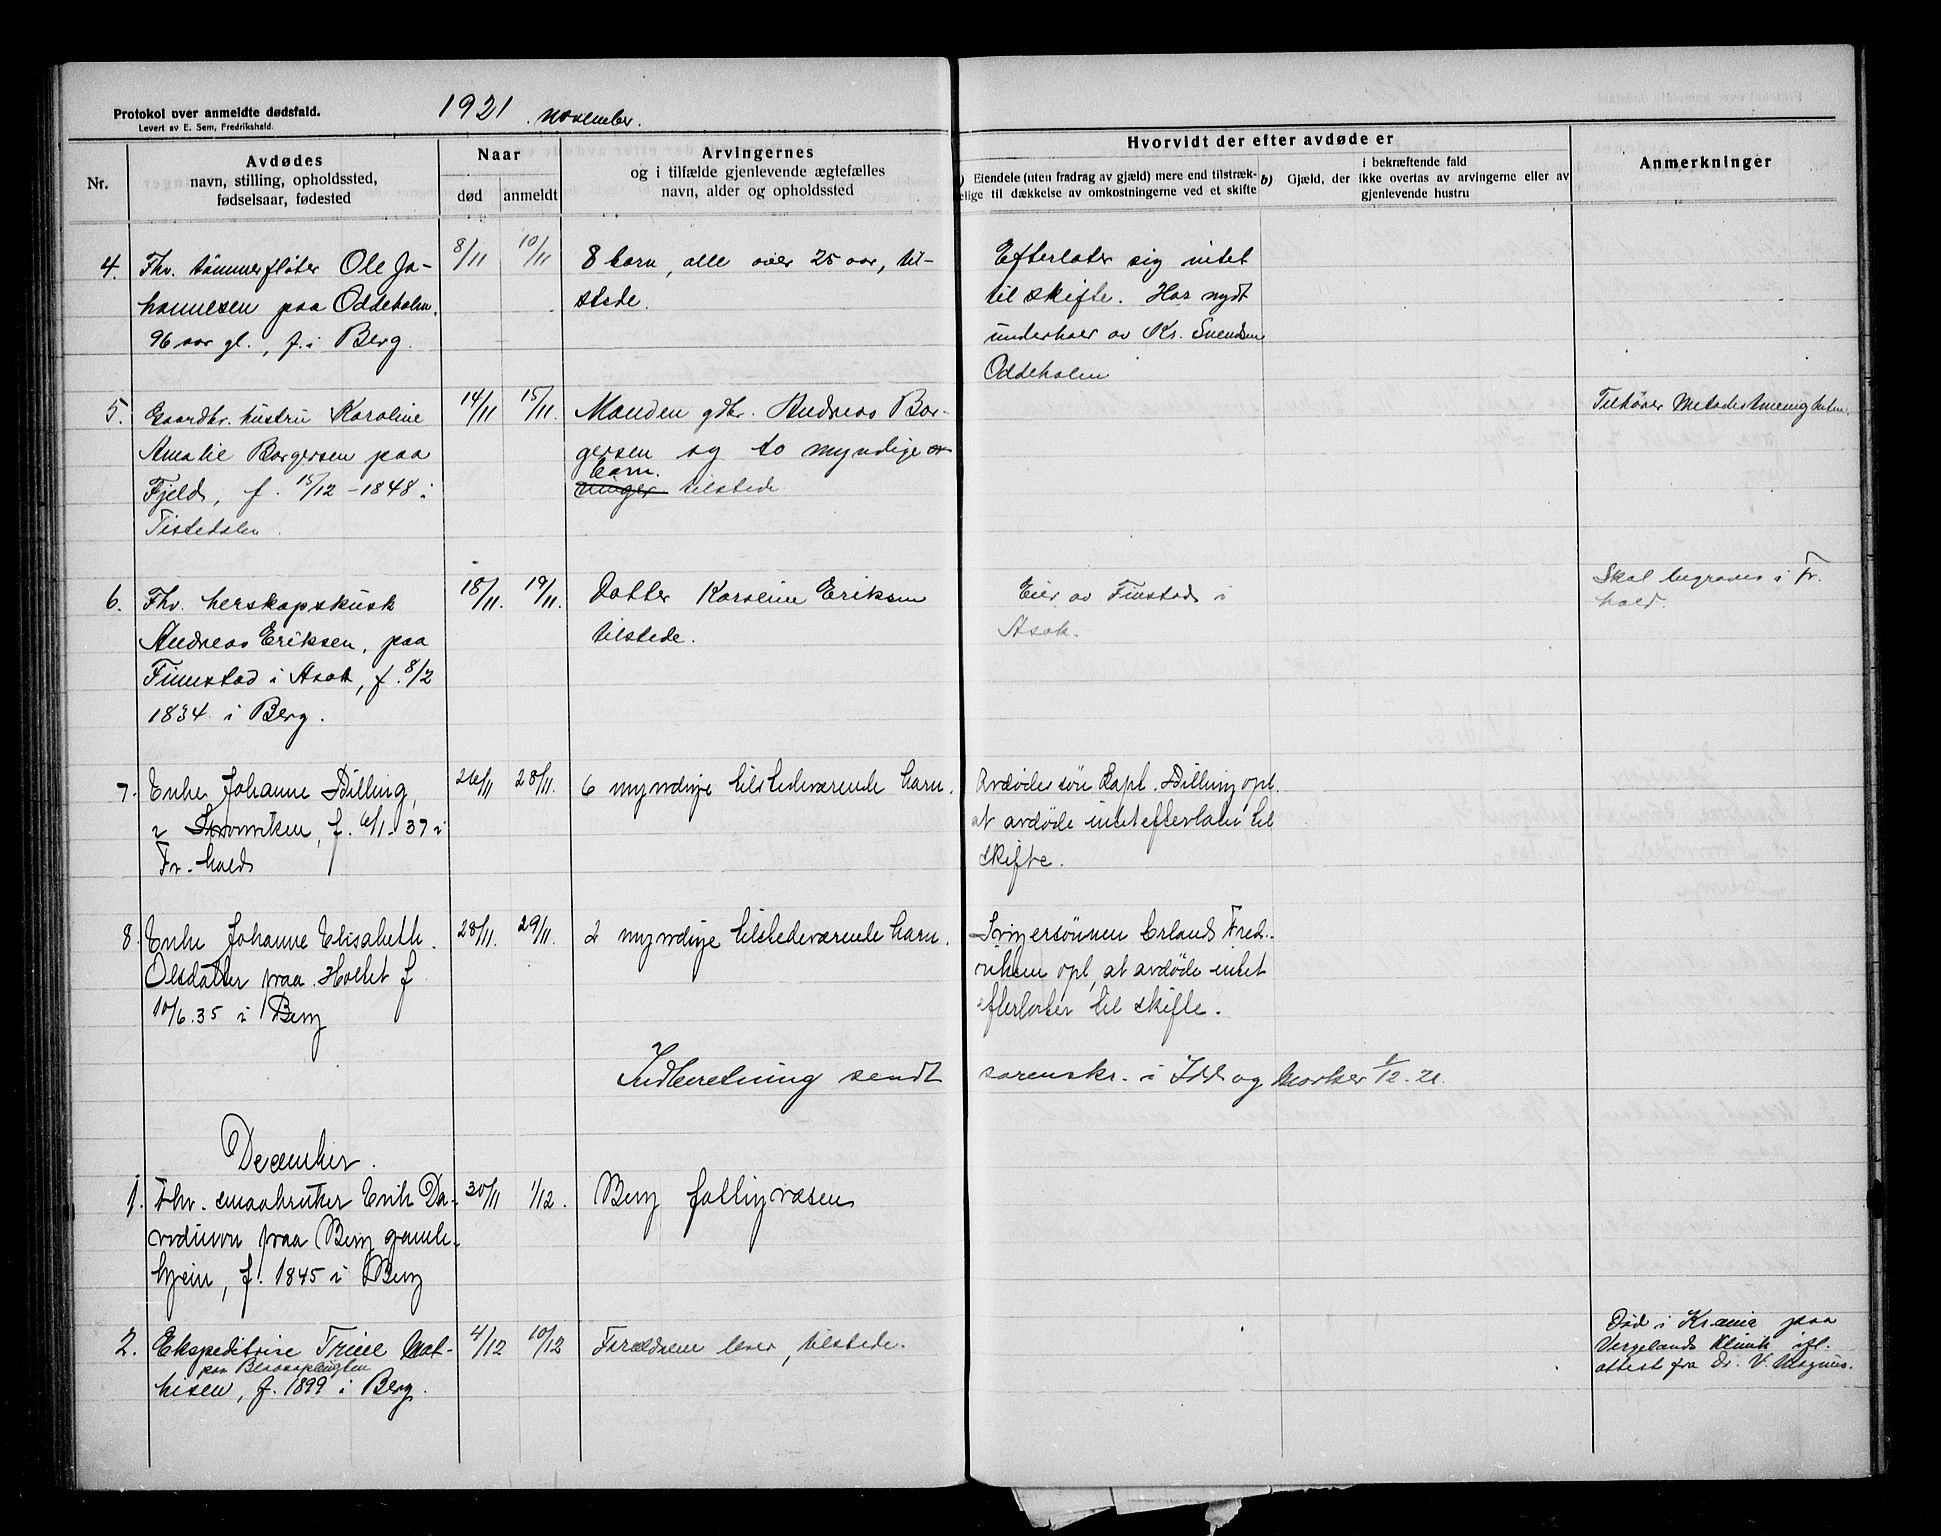 Protokol over anmeldte dødsfald.
Levert av E. Sem, Fredrikshald.
1921 november.
Nr.
Avdødes
navn, stilling, opholdssted,
fødselsaar, fødested
Naar
død
anmeldt
Arvingernes
og i tilfælde gjenlevende ægtefælles
navn, alder og opholdssted
Hvorvidt der efter avdøde er
a) Eiendele (uten fradrag av gjæld) mere end tilstræk-
kelige til dækkelse av omkostningerne ved et skifte
b) Gjæld, der i bekræftende fald
ikke overtas av arvingerne eller av
gjenlevende hustru
Anmerkninger
4. Fhv. tømmerfløter Ole Jo-
hannesen paa Oddeholm.
96 aar gl., f. i Berg.
8/11
10/11
8 barn, alle over 25 aar, til-
stede.
Efterlater sig intet
til skifte. Har nydt
underhold av Kr. Svendsen
Oddeholm
5. Gaardbr. hustru Karoline
Amalie Borgersen paa
Fjeld, f. 15/12-1848 i
Tistedalen.
14/11
15/11.
Manden gdbr. Andreas Bor-
gersen og to myndige ar-
barn.
vinger tilstede
Tilhører Metodistmenigheten.
6. Fhv. herskapskusk
Andreas Eriksen, paa
Finnstad i Asak, f. 8/2
1834 i Berg.
18/11.
19/11.
Datter Karoline Eriksen
tilstede.
Eier av Finstad i
Asak.
Skal begraves i Fr.
hald.
7. Enke Johanne Dilling,
i Svarviken, f. 6/1-37 i
Fr.-hald
26/11
28/11.
6 myndige tilstedeværende barn.
Avdødes søn Kapt. Dilling opl.
at avdøde intet efterlater til
skifte.
8. Enke Johanne Elisabeth
Olsdatter paa Holtet f
10/6.35 i Berg
28/11.
29/11.
2 myndige tilstedeværende barn.
Svigersønnen Erland Fred-
riksen opl. at avdøde intet
efterlater til skifte.
Indberetning sendt sorenskr. i Idd og Marker 1/12-21.
December.
1. Fhv. smaabruker Erik Da-
vidsson paa Berg gamle-
hjem, f. 1845 i Berg
30/11
1/12.
Berg fattigvæsen
2. Ekspeditrise Trine Mat-
paa Blaasopbugten
hisen, f. 1899 i Berg.
4/12
10/12
Forældrene lever, tilstede.
Død i Krania paa
Vergelands Klinik ifl.
attest fra Dr. V. Magnus.